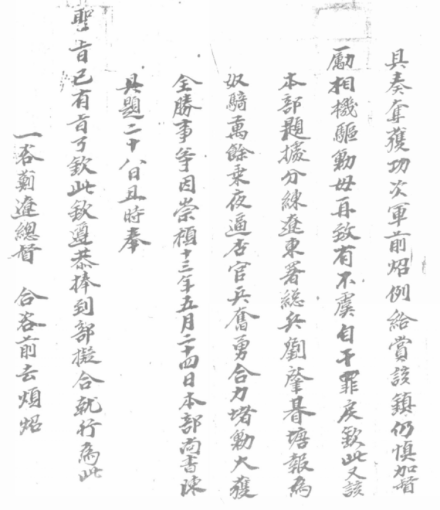 具奏奪獲功次軍前炤例給賞該鎮仍慎加督
勵相機驅勦毋再致有不虞自干罪戾欽此又該
本部題據分練遼東署總兵劉肇基塘報為
奴騎萬餘乘夜逼杏官兵奮勇合力堵勦大獲
全勝事等因崇禎十三年五月二十四日本部尚書陳
具題二十八日且時奉
聖旨已有旨了欽此欽遵恭捧到部擬合就行為此
一咨薊遼總督 合咨前去煩炤